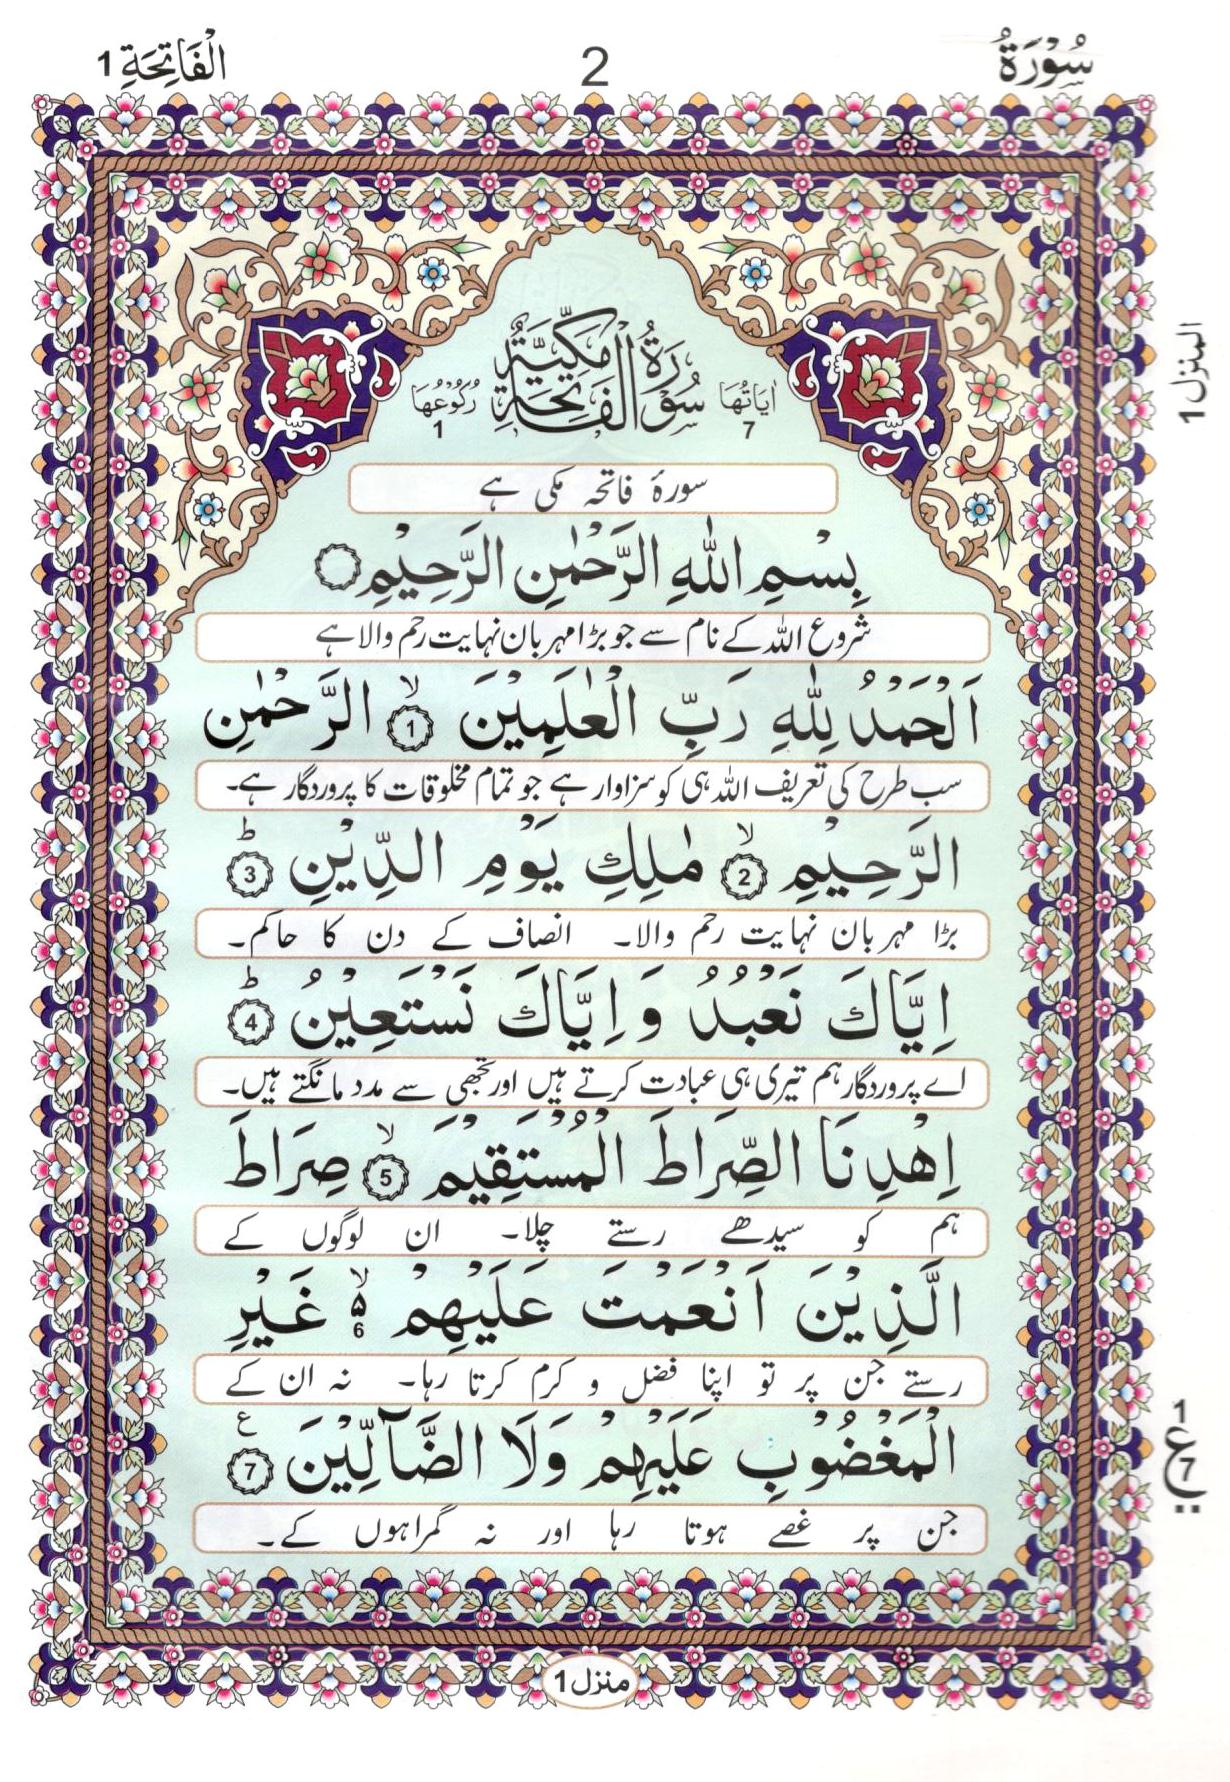 سُوْرَةُ 2 الْفَاتِحَةِ 1
المنزل 1
سُوْرَةُ الْفَاتِحَةِ مَكِّيَّةٌ
اٰيَاتُهَا 7
رُكُوْعُهَا 1
سورۂ فاتحہ مکی ہے
بِسْمِ اللّٰهِ الرَّحْمٰنِ الرَّحِيْمِ
شروع اللہ کے نام سے جو بڑا مہربان نہایت رحم والا ہے
اَلْحَمْدُ لِلّٰهِ رَبِّ الْعٰلَمِيْنَ ۙ 1 الرَّحْمٰنِ
سب طرح کی تعریف اللہ ہی کو سزاوار ہے جو تمام مخلوقات کا پروردگار ہے۔
الرَّحِيْمِ ۙ 2 مٰلِكِ يَوْمِ الدِّيْنِ ؕ 3
بڑا مہربان نہایت رحم والا۔ انصاف کے دن کا حاکم۔
اِيَّاكَ نَعْبُدُ وَ اِيَّاكَ نَسْتَعِيْنُ ؕ 4
اے پروردگار ہم تیری ہی عبادت کرتے ہیں اور تجھی سے مدد مانگتے ہیں۔
اِهْدِنَا الصِّرَاطَ الْمُسْتَقِيْمَ ۙ 5 صِرَاطَ
ہم کو سیدھے رستے چلا۔ ان لوگوں کے
الَّذِيْنَ اَنْعَمْتَ عَلَيْهِمْ ۙ ۵ 6 غَيْرِ
رستے جن پر تو اپنا فضل و کرم کرتا رہا۔ نہ ان کے
الْمَغْضُوْبِ عَلَيْهِمْ وَلَا الضَّآلِّيْنَ ع 7
جن پر غصے ہوتا رہا اور نہ گمراہوں کے۔
ع 7
منزل 1